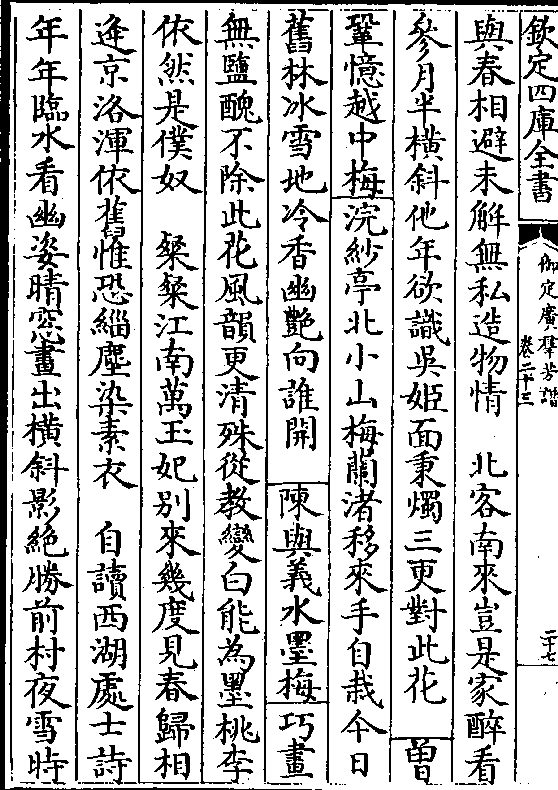 欽定四庫全書
御定廣羣芳譜
卷二十三
二十七
與春相避未解無私造物情　北客南來豈是家醉看
參月半橫斜他年欲識吳姬面秉燭三更對此花　曾
鞏憶越中梅浣紗亭北小山梅蘭渚移來手自栽今日
舊林冰雪地冷香幽艷向誰開　陳與義水墨梅巧畫
無鹽醜不除此花風韻更清殊從教變白能為墨桃李
依然是僕奴　粲粲江南萬玉妃別來幾度見春歸相
逢京洛渾依舊惟恐緇塵染素衣　自讀西湖處士詩
年年臨水看幽姿晴窓畫出橫斜影絶勝前村夜雪時